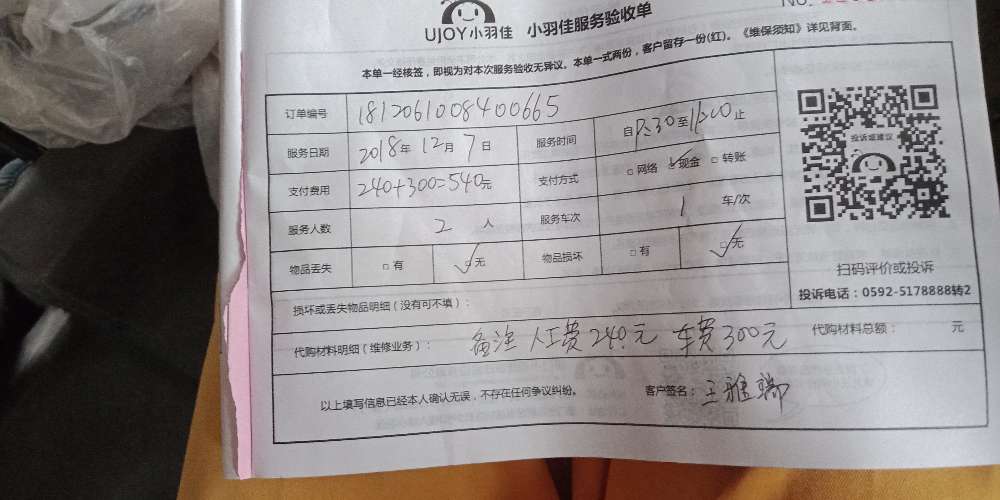 UJOY小羽佳 小羽佳服务验收单
NO.
本单一经核签，即视为对本次服务验收无异议。本单一式两份，客户留存一份(红)。《维保须知》详见背面。
订单编号 1812061008400665
服务日期 2018年12月7日 服务时间 自 8:30至11:00止
支付费用 240+300=540元 支付方式 □网络 ☑现金 □转账
服务人数 2人 服务车次 1车/次
物品丢失 □有 ☑无 物品损坏 □有 ☑无
投诉或建议
扫码评价或投诉
投诉电话：0592-5178888转2
损坏或丢失物品明细（没有可不填）：
代购材料明细（维修业务）： 备注 人工费240元 车费300元 代购材料总额： 元
以上填写信息已经本人确认无误，不存在任何争议纠纷。 客户签名：王雅端